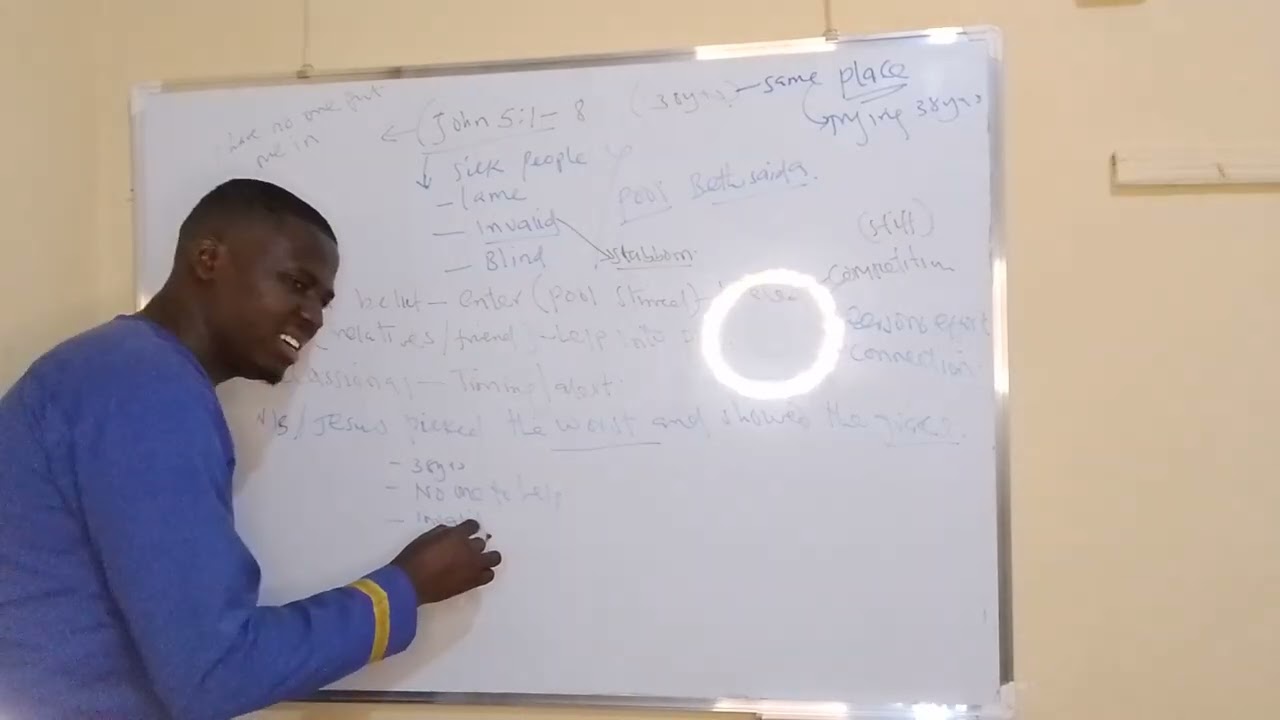 have no one put
me in
(John 5:1- 8
(38yrs) - same place
trying 38yrs
sick people
- lame
- Invalid
stabbom.
- Blind
Pool Bethsaida.
(stiff)
competition
belief - enter (pool stirred) -
relatives/friend) - help into
connection.
- Timing/alert.
N/B/ Jesus picked the worst and showed the
- 38yrs
- No one to help
- Invalid